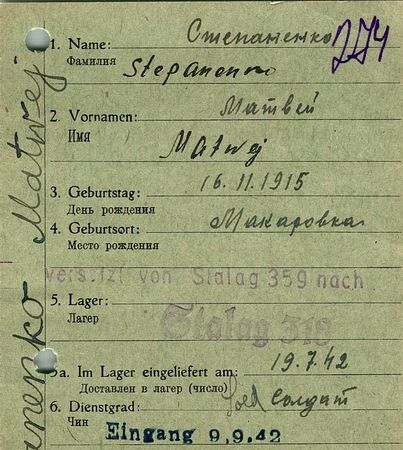 1. Name: Степаненко
Фамилия Stepanenko
274
2. Vornamen: Матвей
Имя Matwej
3. Geburtstag: 16.11.1915
День рождения
4. Geburtsort: Макаровка
Место рождения
vers.tzt von Stalag 359 nach
5. Lager:
Лагер Stalag 319
5a. Im Lager eingeliefert am: 19.7.42
Доставлен в лагер (число)
6. Dienstgrad: Sold Солдат
Чин
Eingang 9.9.42
nenko Matwej